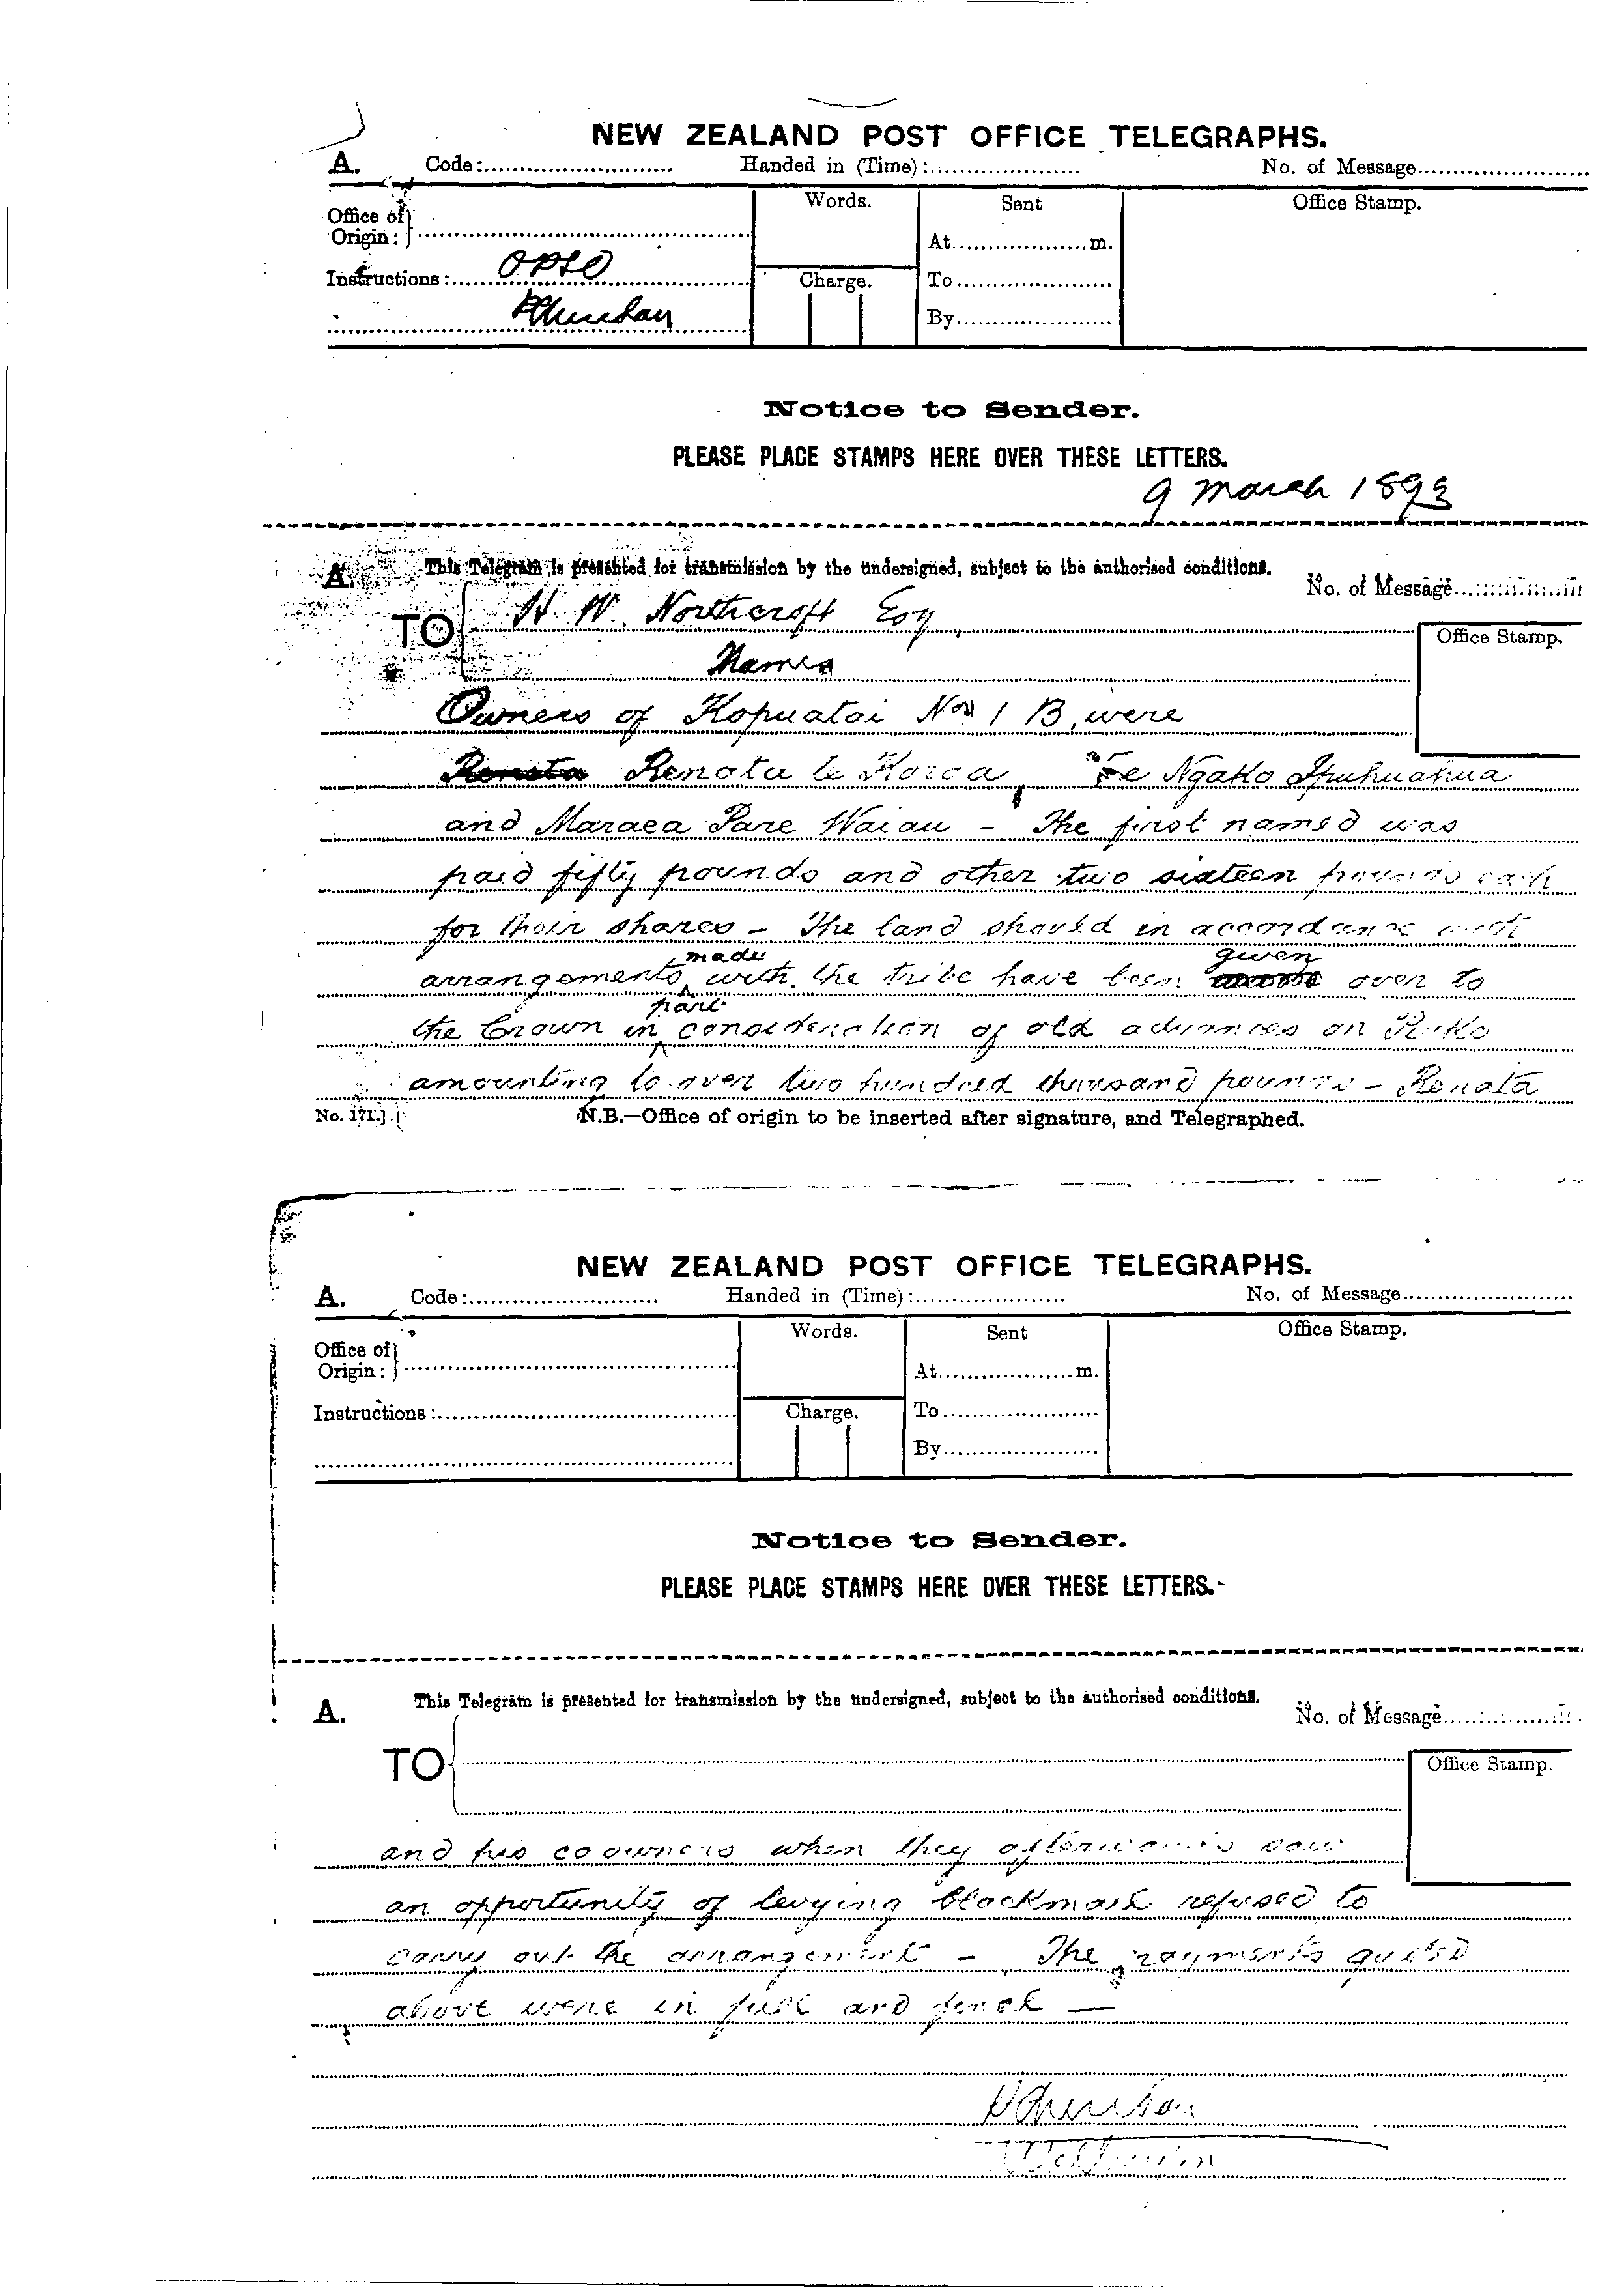 NEW ZEALAND POST OFFICE TELEGRAPHS.
A. Code: Handed in (Time): No. of Message
Words. Sent Office Stamp.
Office of
Origin:
At m.
Instructions: OPSO Charge. To
By
Notice to Sender.
PLEASE PLACE STAMPS HERE OVER THESE LETTERS.
9 March 1893
A. This Telegram is presented for transmission by the undersigned, subject to the authorised conditions. No. of Message
TO H. W. Northcroft Esq
Office Stamp.
Thames
Owners of Kopuatai No 1 B, were
Renata Renata te Te Ngako Ipuhuahua
and Maraea Pare Waiau - The first named was
paid fifty pounds and other two sixteen pounds each
for their shares - The land should in accordance with
made given
arrangements with the tribe have been over to
part
the Crown in consideration of old advances on
amounting to over two hundred thousand pounds - Renata
No. 171.] N.B.—Office of origin to be inserted after signature, and Telegraphed.
NEW ZEALAND POST OFFICE TELEGRAPHS.
A. Code: Handed in (Time): No. of Message
Words. Sent Office Stamp.
Office of
Origin:
At m.
Instructions: Charge. To
By
Notice to Sender.
PLEASE PLACE STAMPS HERE OVER THESE LETTERS.
A. This Telegram is presented for transmission by the undersigned, subject to the authorised conditions. No. of Message
TO
Office Stamp.
and his coowners when they afterwards saw
an opportunity of levying blackmail refused to
carry out the arrangement - The payments quoted
above were in full and final —